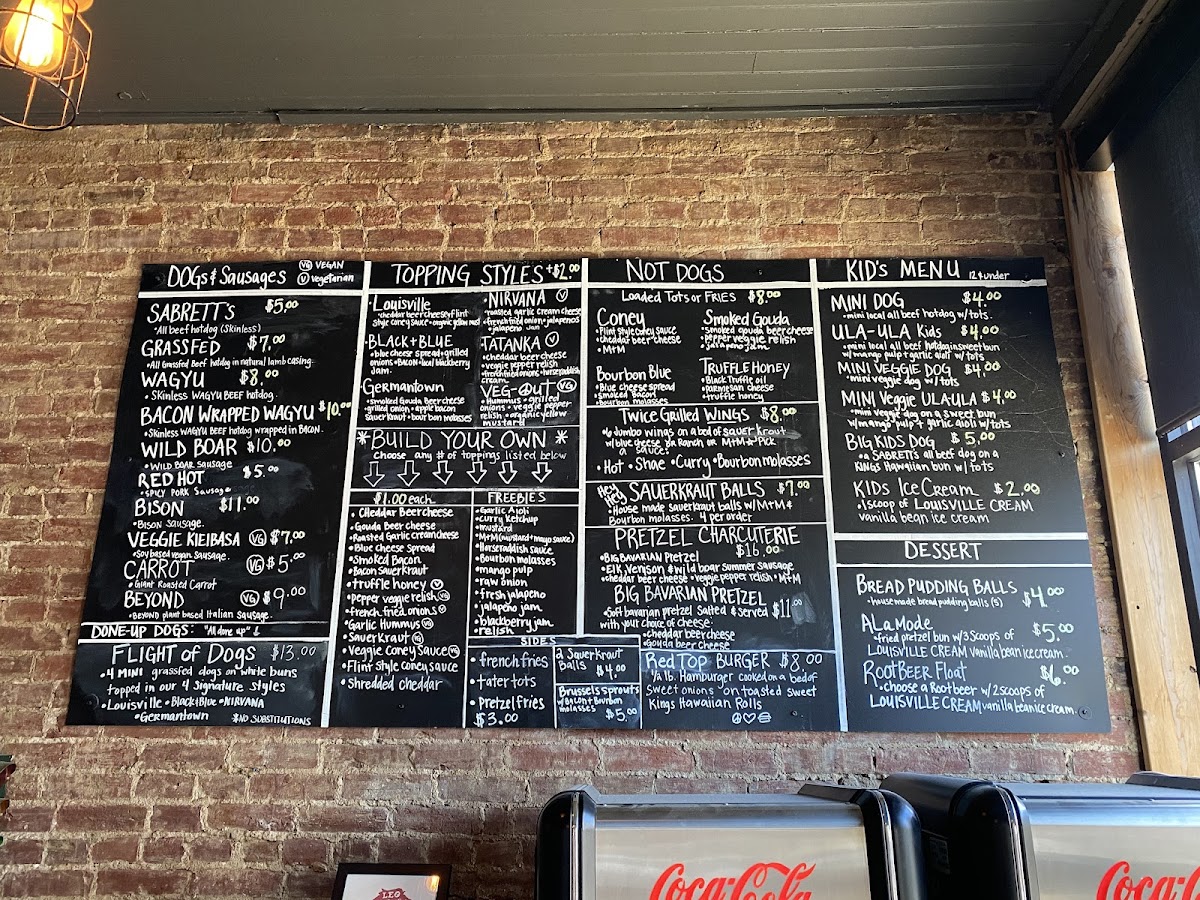 DOGS & Sausages
VG VEGAN
V Vegetarian
SABRETT's $5.00
• All beef hotdog (skinless)
GRASSFED $7.00
• All Grassfed Beef hotdog in natural lamb casing.
WAGYU $8.00
• Skinless WAGYU BEEF hotdog.
BACON WRAPPED WAGYU $10.00
• Skinless WAGYU BEEF hotdog wrapped in BACON.
WILD BOAR $10.00
• WILD BOAR sausage
RED HOT $5.00
• SPICY PORK Sausage
BISON $11.00
• BISON Sausage.
VEGGIE KIELBASA VG $7.00
• Soy based vegan Sausage.
CARROT VG $5.00
• Giant Roasted Carrot
BEYOND VG $9.00
• BEYOND plant based Italian Sausage.
DONE-UP DOGS: "All done up" ↓
FLIGHT of DOGS $13.00
• 4 MINI grassfed dogs on white buns
topped in our 4 Signature styles
• Louisville • Black+Blue • NIRVANA
• Germantown *NO SUBSTITUTIONS
TOPPING STYLES +$2.00
• Louisville
• cheddar beer cheese • Flint
style coney sauce • organic yellow mustard
• BLACK+BLUE
• blue cheese spread • grilled
onions • BACON • local blackberry
jam.
• Germantown
• smoked Gouda Beer cheese
• grilled onion • apple bacon
sauerkraut • bourbon molasses
• NIRVANA V
• roasted garlic cream cheese
• french fried onion • jalapenos
• jalapeno Jam
• TATANKA V
• cheddar beer cheese
• veggie pepper relish
• french fried onions • horseradish
cream
VEG-OUT VG
• Hummus • grilled
onions • veggie pepper
relish • organic yellow
mustard
*BUILD YOUR OWN*
Choose any # of toppings listed below
$1.00 each
• Cheddar Beer cheese
• Gouda Beer cheese
• Roasted Garlic cream cheese
• Blue cheese spread
• Smoked Bacon
• Bacon Sauerkraut
• truffle honey V
• pepper veggie relish VG
• french fried onions V
• Garlic Hummus VG
• Sauerkraut VG
• Veggie Coney Sauce VG
• Flint Style Coney Sauce
• Shredded cheddar
FREEBIES
• Garlic Aioli
• Curry Ketchup
• mustard
• M+M (mustard + mayo sauce)
• Horseraddish sauce
• Bourbon molasses
• mango pulp
• raw onion
• fresh jalapeño
• jalapeño jam
• blackberry jam
relish
SIDES
• french fries
• tater tots
• Pretzel fries
$3.00
2 Sauerkraut
Balls $4.00
Brussels sprouts
w/ Bacon + Bourbon
molasses $5.00
NOT DOGS
Loaded Tots or FRIES $8.00
Coney
• Flint Style coney sauce
• cheddar beer cheese
• M+M
Smoked Gouda
• smoked gouda beer cheese
• pepper veggie relish
• jalapeno jam
Bourbon Blue
• Blue cheese spread
• smoked bacon
• bourbon molasses
TRUFFLE HONEY
• Black Truffle oil
• parmesan cheese
• truffle honey
TWICE GRILLED WINGS $8.00
• 6 Jumbo wings on a bed of sauer kraut
w/ blue cheese or Ranch or M+M • Pick
a sauce:
• Hot • Shae • Curry • Bourbon molasses
Hey Hey SAUERKRAUT BALLS $7.00
• House made sauerkraut balls w/ M+M +
Bourbon molasses. 4 per order
PRETZEL CHARCUTERIE
$16.00
• BIG BAVARIAN Pretzel
• Elk, Venison & wild boar summer sausage
• cheddar beer cheese • veggie pepper relish • M+M
BIG BAVARIAN PRETZEL
• Soft bavarian pretzel Salted & served $11.00
with your choice of cheese:
• cheddar beer cheese
• Gouda beer cheese
Red Top BURGER $8.00
• 1/4 lb. Hamburger cooked on a bed of
sweet onions - on toasted sweet
Kings Hawaiian Rolls
KID's MENU 12 & under
MINI DOG $4.00
• mini local all beef hotdog w/ tots.
ULA-ULA Kids $4.00
• mini local all beef hotdog in sweet bun
w/ mango pulp + garlic aioli w/ tots
MINI VEGGIE DOG $4.00
• mini veggie dog w/ tots
MINI Veggie ULA ULA $4.00
• mini veggie dog on a sweet bun
w/ mango pulp + garlic aioli w/ tots
BIG KIDS DOG $5.00
• a SABRETTS all beef dog on a
KINGS Hawaiian bun w/ tots
KIDS Ice Cream $2.00
• 1 scoop of LOUISVILLE CREAM
vanilla bean ice cream
DESSERT
BREAD PUDDING BALLS $4.00
• house made bread pudding balls (5)
A La Mode $5.00
• fried pretzel bun w/ 3 Scoops of
LOUISVILLE CREAM vanilla bean ice cream.
ROOT BEER Float $6.00
• choose a Rootbeer w/ 2 scoops of
LOUISVILLE CREAM vanilla bean ice cream.
LEO
Coca-Cola
Coca-Cola